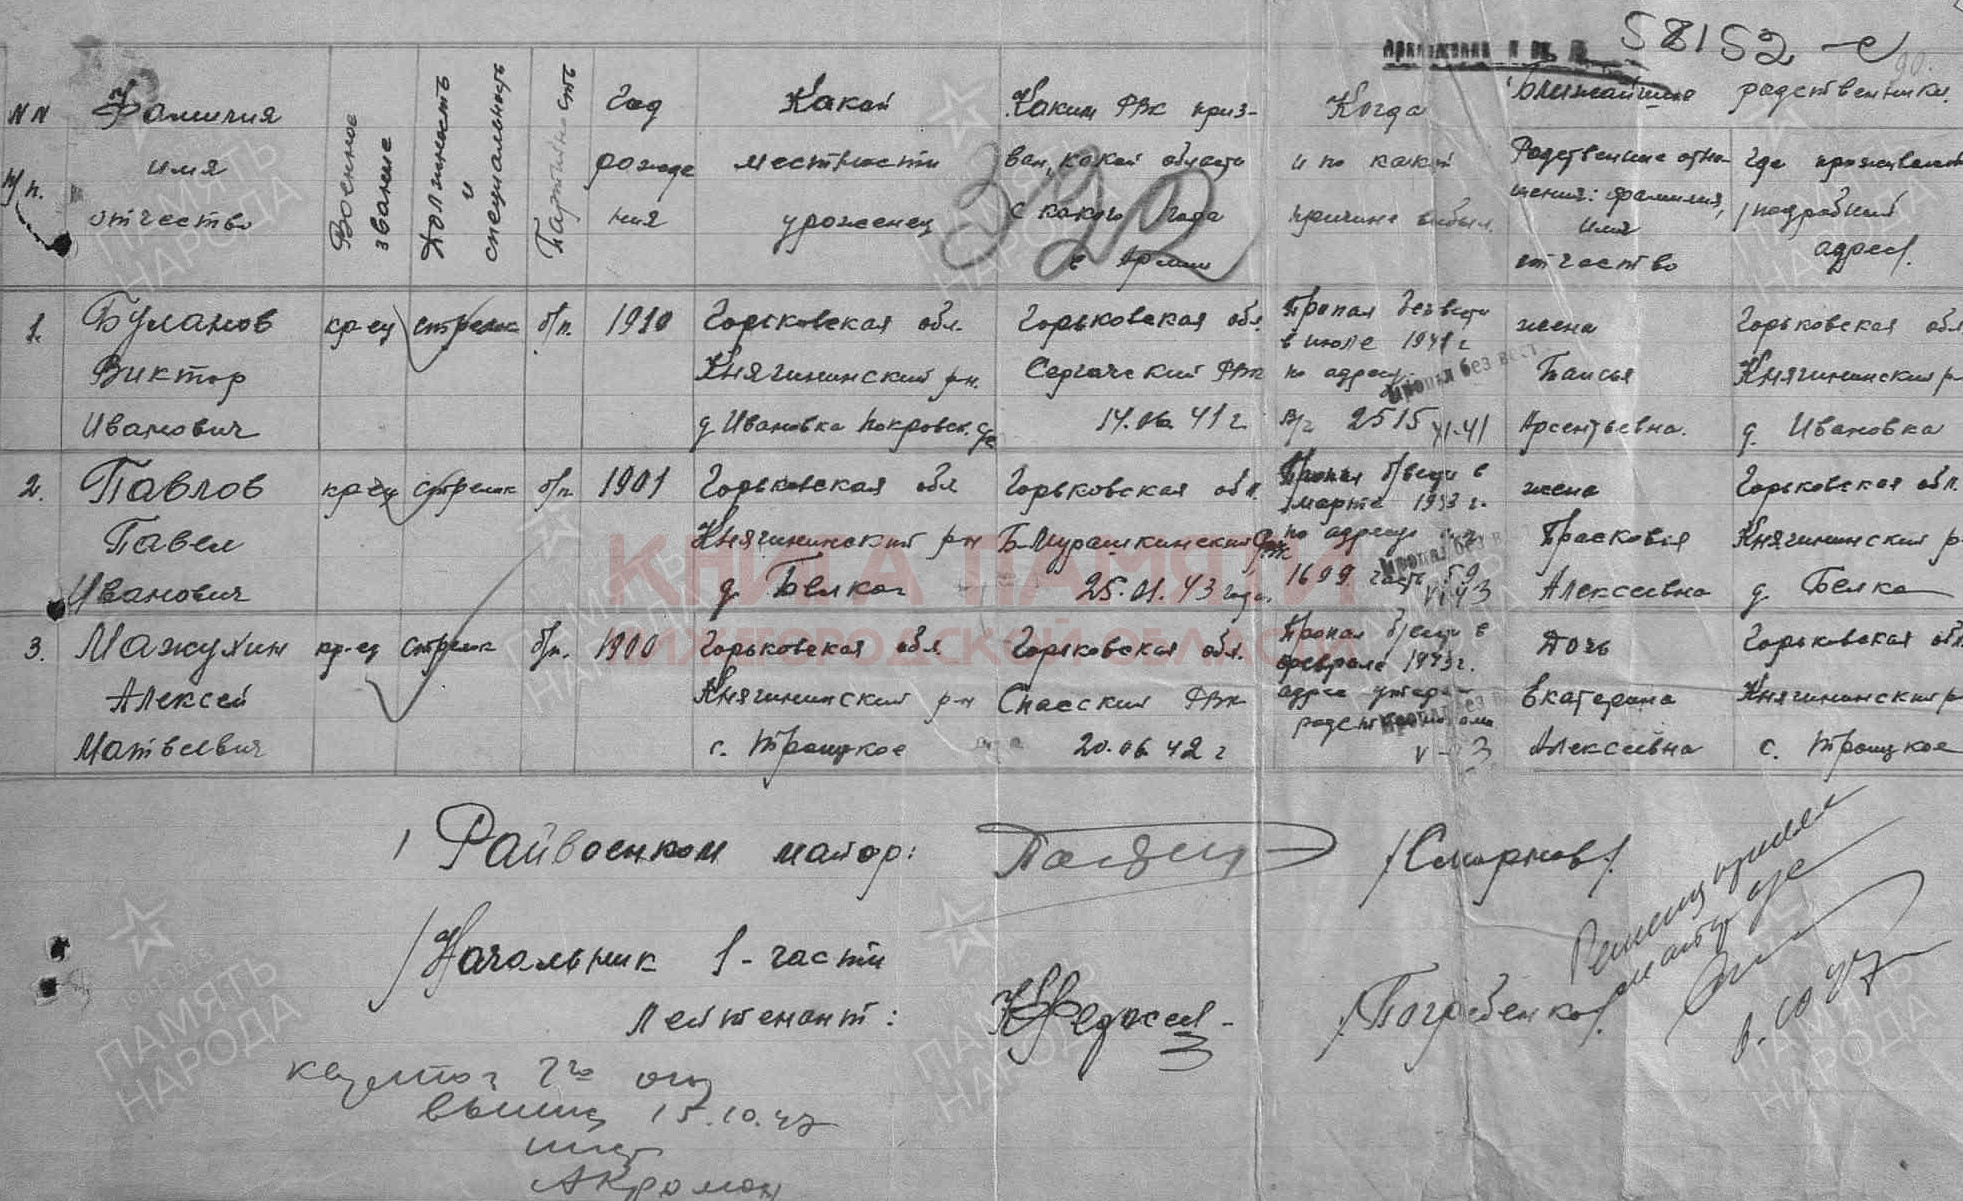 58152-с
NN п/п.
Фамилия
имя
отчество
Военное
звание
Должность
и
специальность
Партийность
Год
рожде
ния
Какой
местности
уроженец
Каким РВК приз-
ван, какой области
с какого года
в Армии
Когда
и по какой
причине выбыл.
Ближайшие родственники.
Родственные отно-
шения: фамилия,
имя
отчество
Где проживают
/подробный
адрес/.
392
1. Буланов кр-ец стрелок б/п. 1910 Горьковская обл. Горьковская обл. Пропал без вести жена Горьковская обл
в июле 1941 г
Виктор Княгининский р-н. Сергачский РВК по адресу. Таисья Княгининский р-
Пропал без вест
Иванович д. Ивановка Покровск. с/с 14.06.41 г. п/я 2515 XI-41 Арсентьевна. д. Ивановка
2. Павлов кр-ец стрелок б/п 1901 Горьковская обл Горьковская обл. Пропал б/вести в жена Горьковская обл.
марте 1943 г.
Павел Княгининский р-н Б.Мурашкинский РВК по адресу Прасковья Княгининский р-
Пропал без в
Иванович д. Белка 25.01.43 года. 1699 часть 59 VI-43 Алексеевна д. Белка
3. Мажухин кр-ец стрелок б/п. 1900 Горьковская обл. Горьковская обл. Пропал б/вести в Дочь Горьковская обл.
феврале 1943г.
Алексей Княгининский р-н Спасский РВК адрес утерян Екатерина Княгининский р-
родственниками
Пропал без в
Матвеевич с. Троицкое 20.06.42 г V-43 Алексеевна с. Троицкое
КНИГА ПАМЯТИ
НИЖЕГОРОДСКОЙ ОБЛАСТИ
/ Райвоенком майор: /Смирнов/.
/ Начальник 1-части
Лейтенант: /Погребенков/.
15.10.47
ПАМЯТЬ
НАРОДА